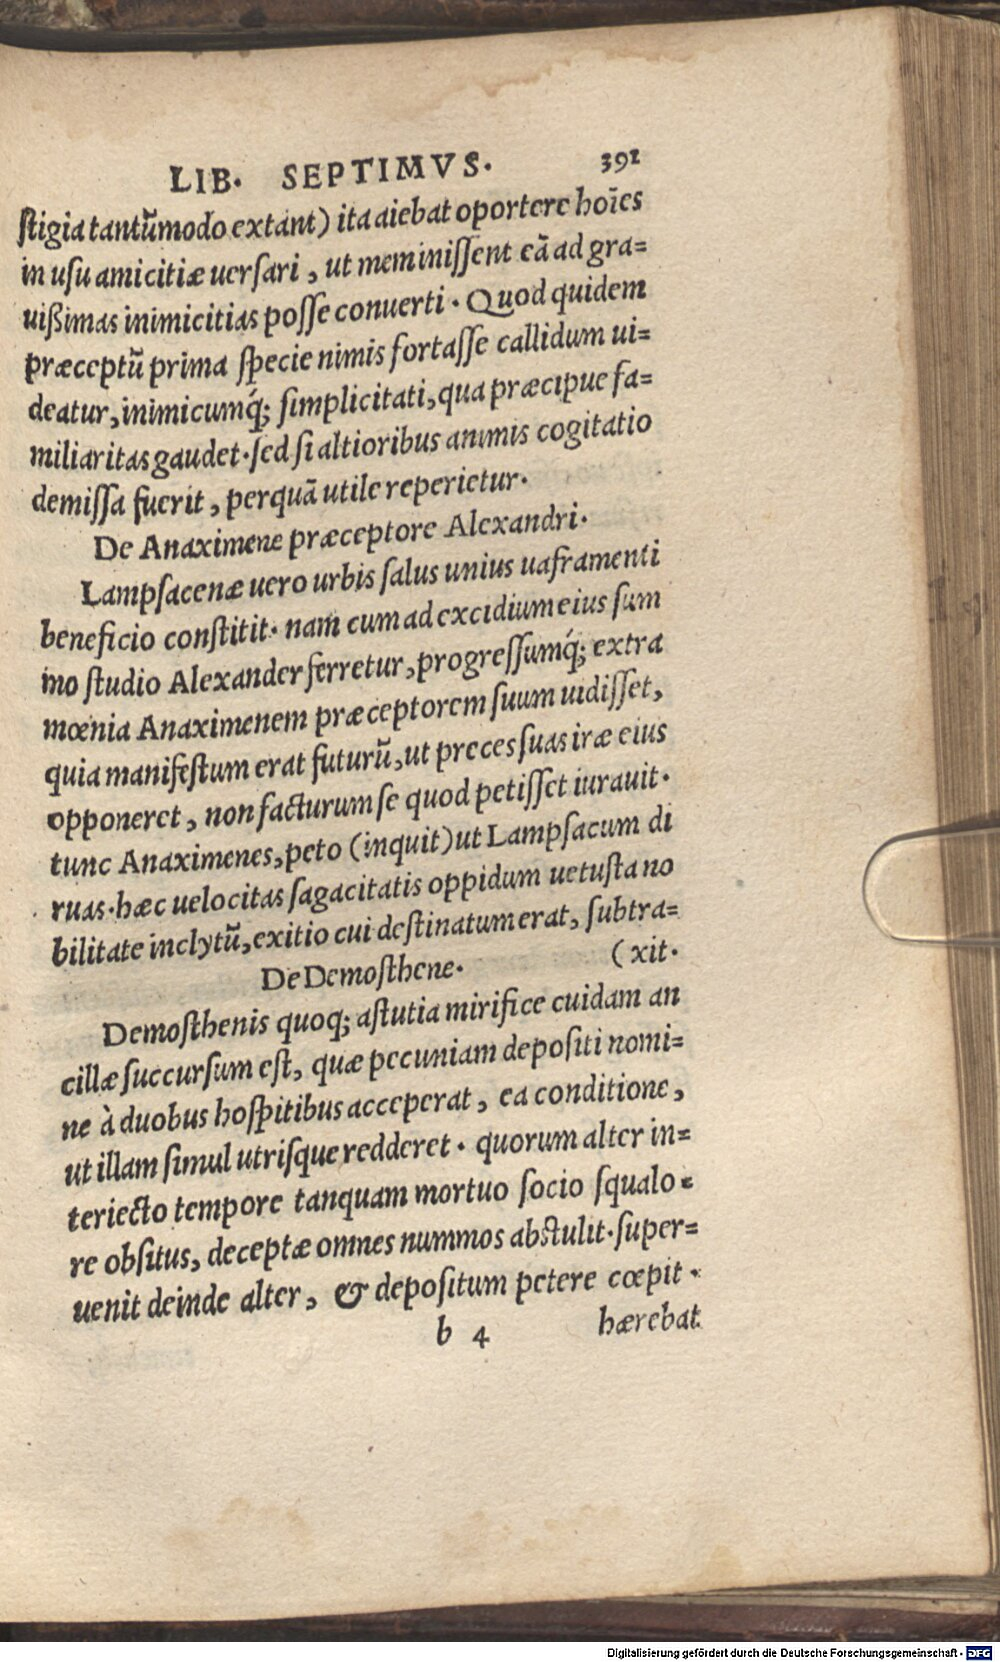 LIB. SEPTIMVS. 391
ſtigia tantũmodo extant) ita aiebat oportere hoīes
in uſu amicitiæ uerſari, ut meminiſſent eã ad gra=
uißimas inimicitias poſſe conuerti. Quod quidem
præceptũ prima ſpecie nimis fortaſſe callidum ui=
deatur, inimicumq́; ſimplicitati, qua præcipue fa=
miliaritas gaudet. ſed ſi altioribus animis cogitatio
demiſſa fuerit, perquã utile reperietur.
De Anaximene præceptore Alexandri.
Lampſacenæ uero urbis ſalus unius uaframenti
beneficio conſtitit. nam cum ad excidium eius ſum
mo ſtudio Alexander ferretur, progreſſumq́; extra
mœnia Anaximenem præceptorem ſuum uidiſſet,
quia manifeſtum erat futurũ, ut preces ſuas iræ eius
opponeret, non facturum ſe quod petiſſet iurauit.
tunc Anaximenes, peto (inquit) ut Lampſacum di
ruas. hæc uelocitas ſagacitatis oppidum uetuſta no
bilitate inclytũ, exitio cui deſtinatum erat, ſubtra=
De Demoſthene. (xit.
Demoſthenis quoq; aſtutia mirifice cuidam an
cillæ ſuccurſum eſt, quæ pecuniam depoſiti nomi=
ne à duobus hoſpitibus acceperat, ea conditione,
ut illam ſimul utriſque redderet. quorum alter in=
teriecto tempore tanquam mortuo ſocio ſqualo=
re obſitus, deceptæ omnes nummos abſtulit. ſuper=
uenit deinde alter, & depoſitum petere cœpit.
b 4 hærebat
Digitalisierung gefördert durch die Deutsche Forschungsgemeinschaft - DFG